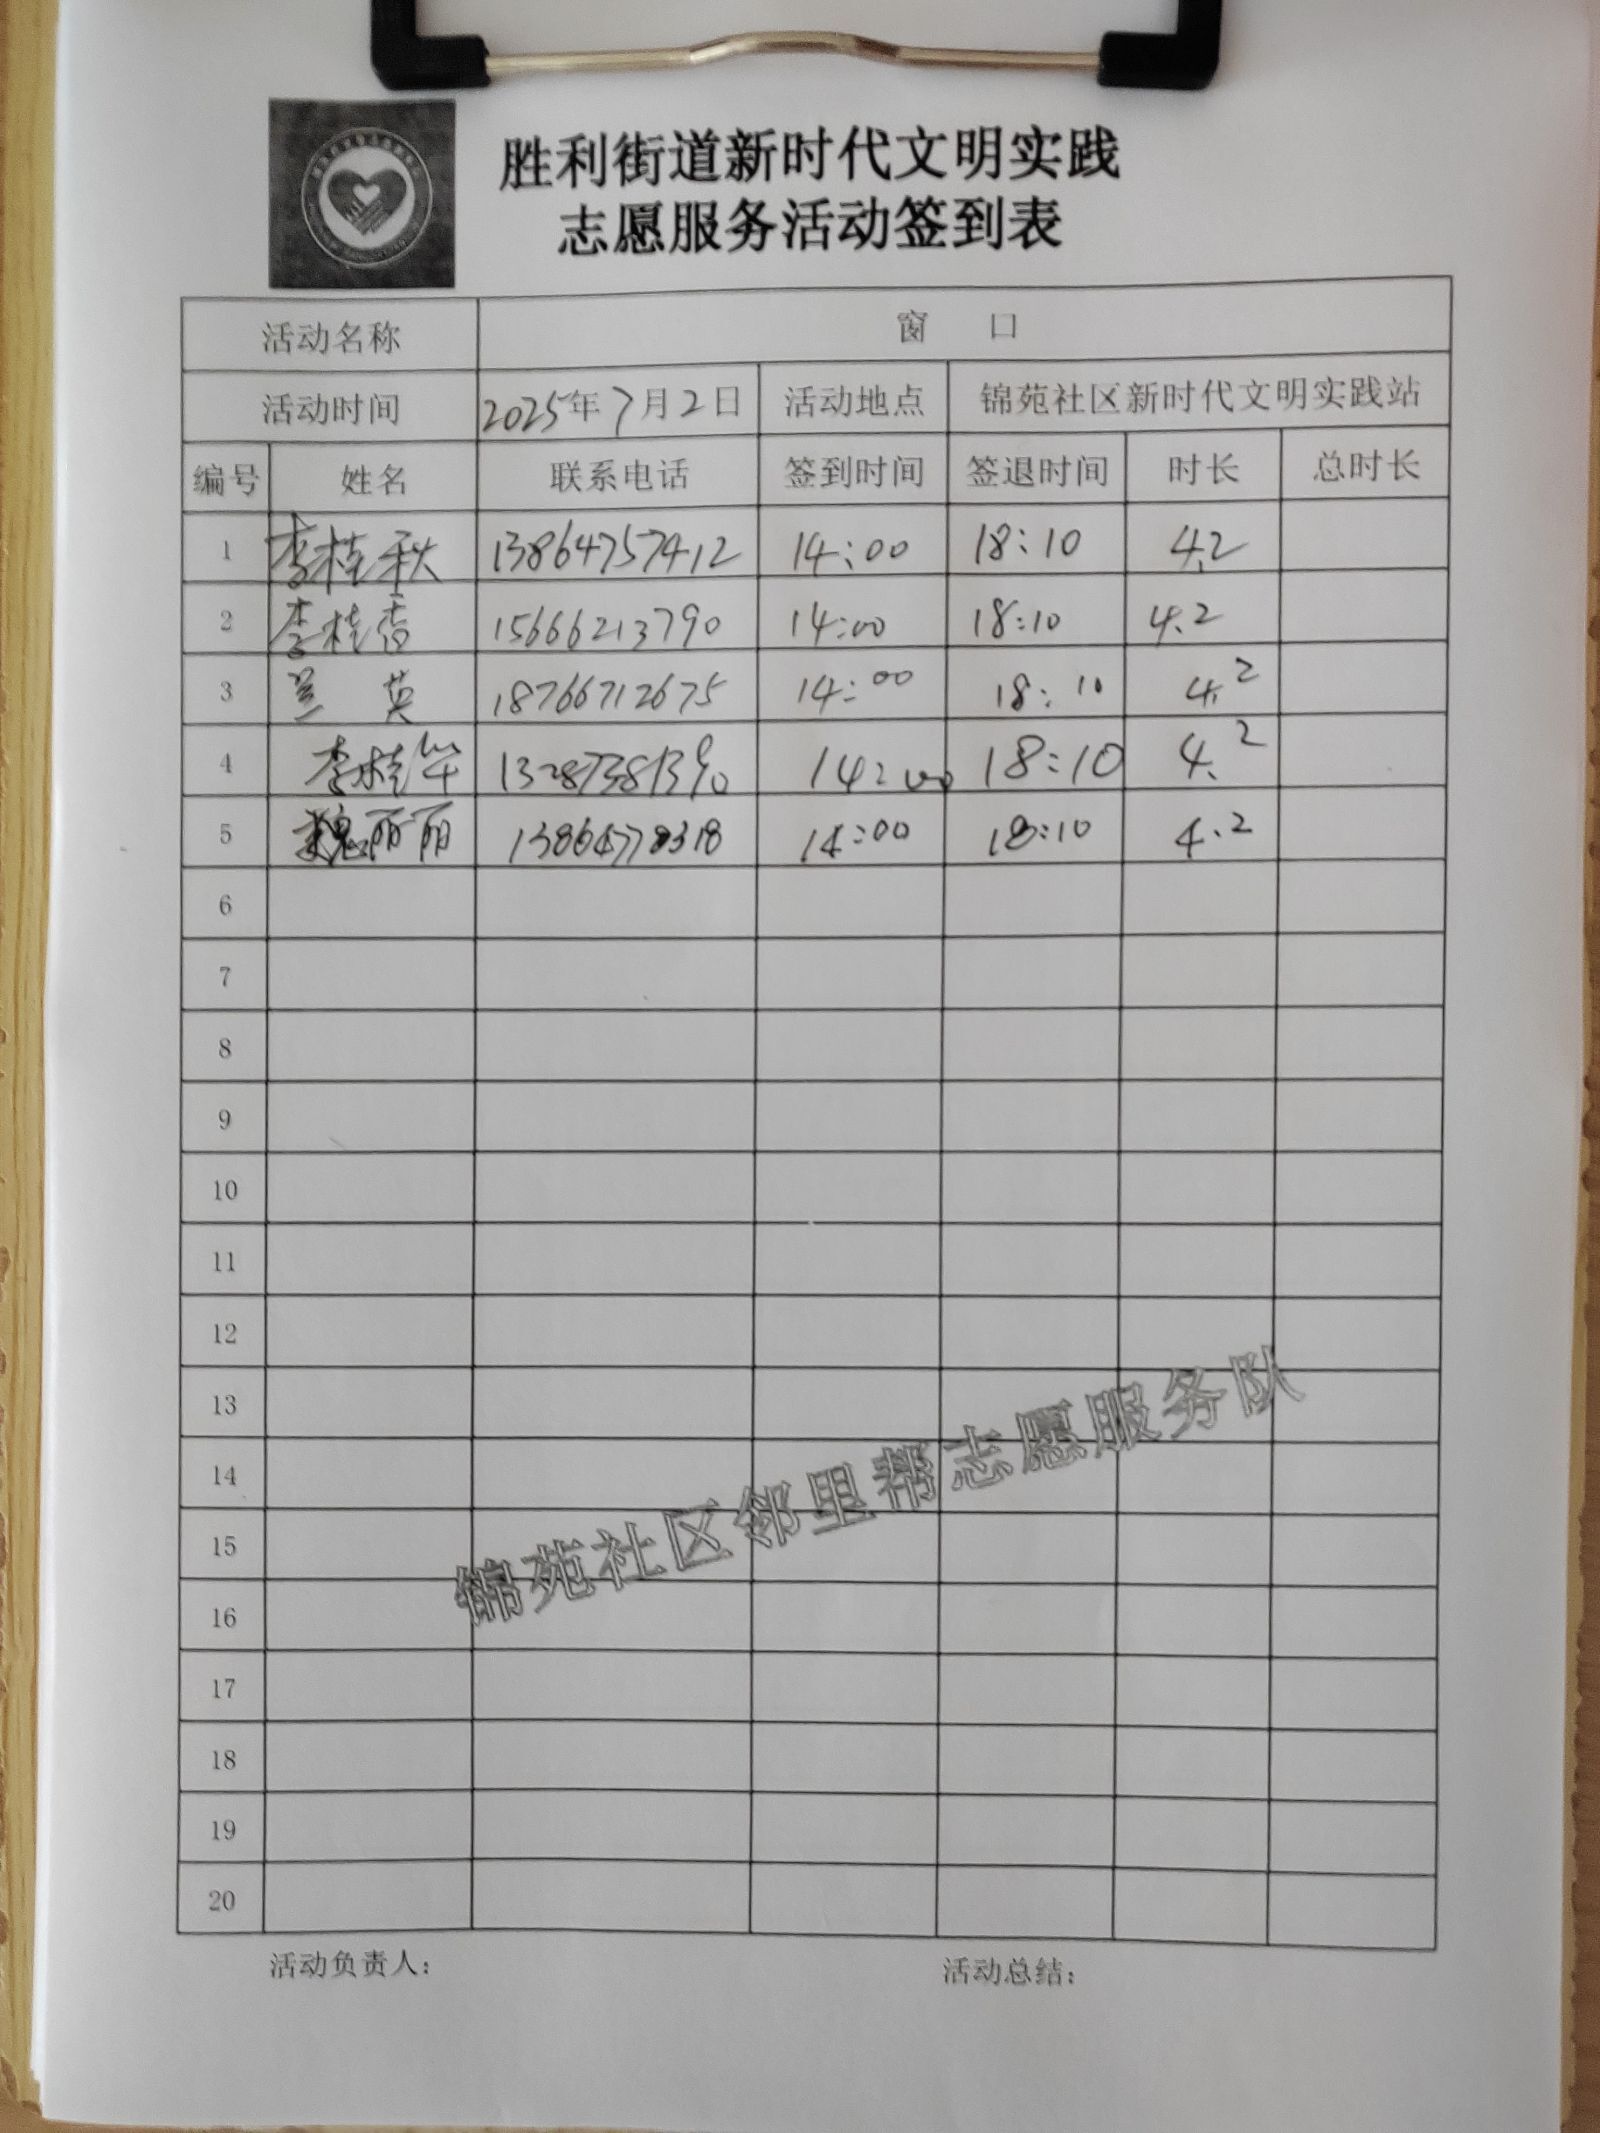 胜利街道新时代文明实践
志愿服务活动签到表
活动名称 窗 口
活动时间 2025年7月2日 活动地点 锦苑社区新时代文明实践站
编号 姓名 联系电话 签到时间 签退时间 时长 总时长
1 李桂秋 13864757412 14:00 18:10 4.2
2 李桂香 15666213790 14:00 18:10 4.2
3 兰英 18766712675 14:00 18:10 4.2
4 李桂华 14:00 18:10 4.2
5 魏丽丽 13864778318 14:00 18:10 4.2
6
7
8
9
10
11
12
13
14
15
16
17
18
19
20
锦苑社区邻里帮志愿服务队
活动负责人:
活动总结: